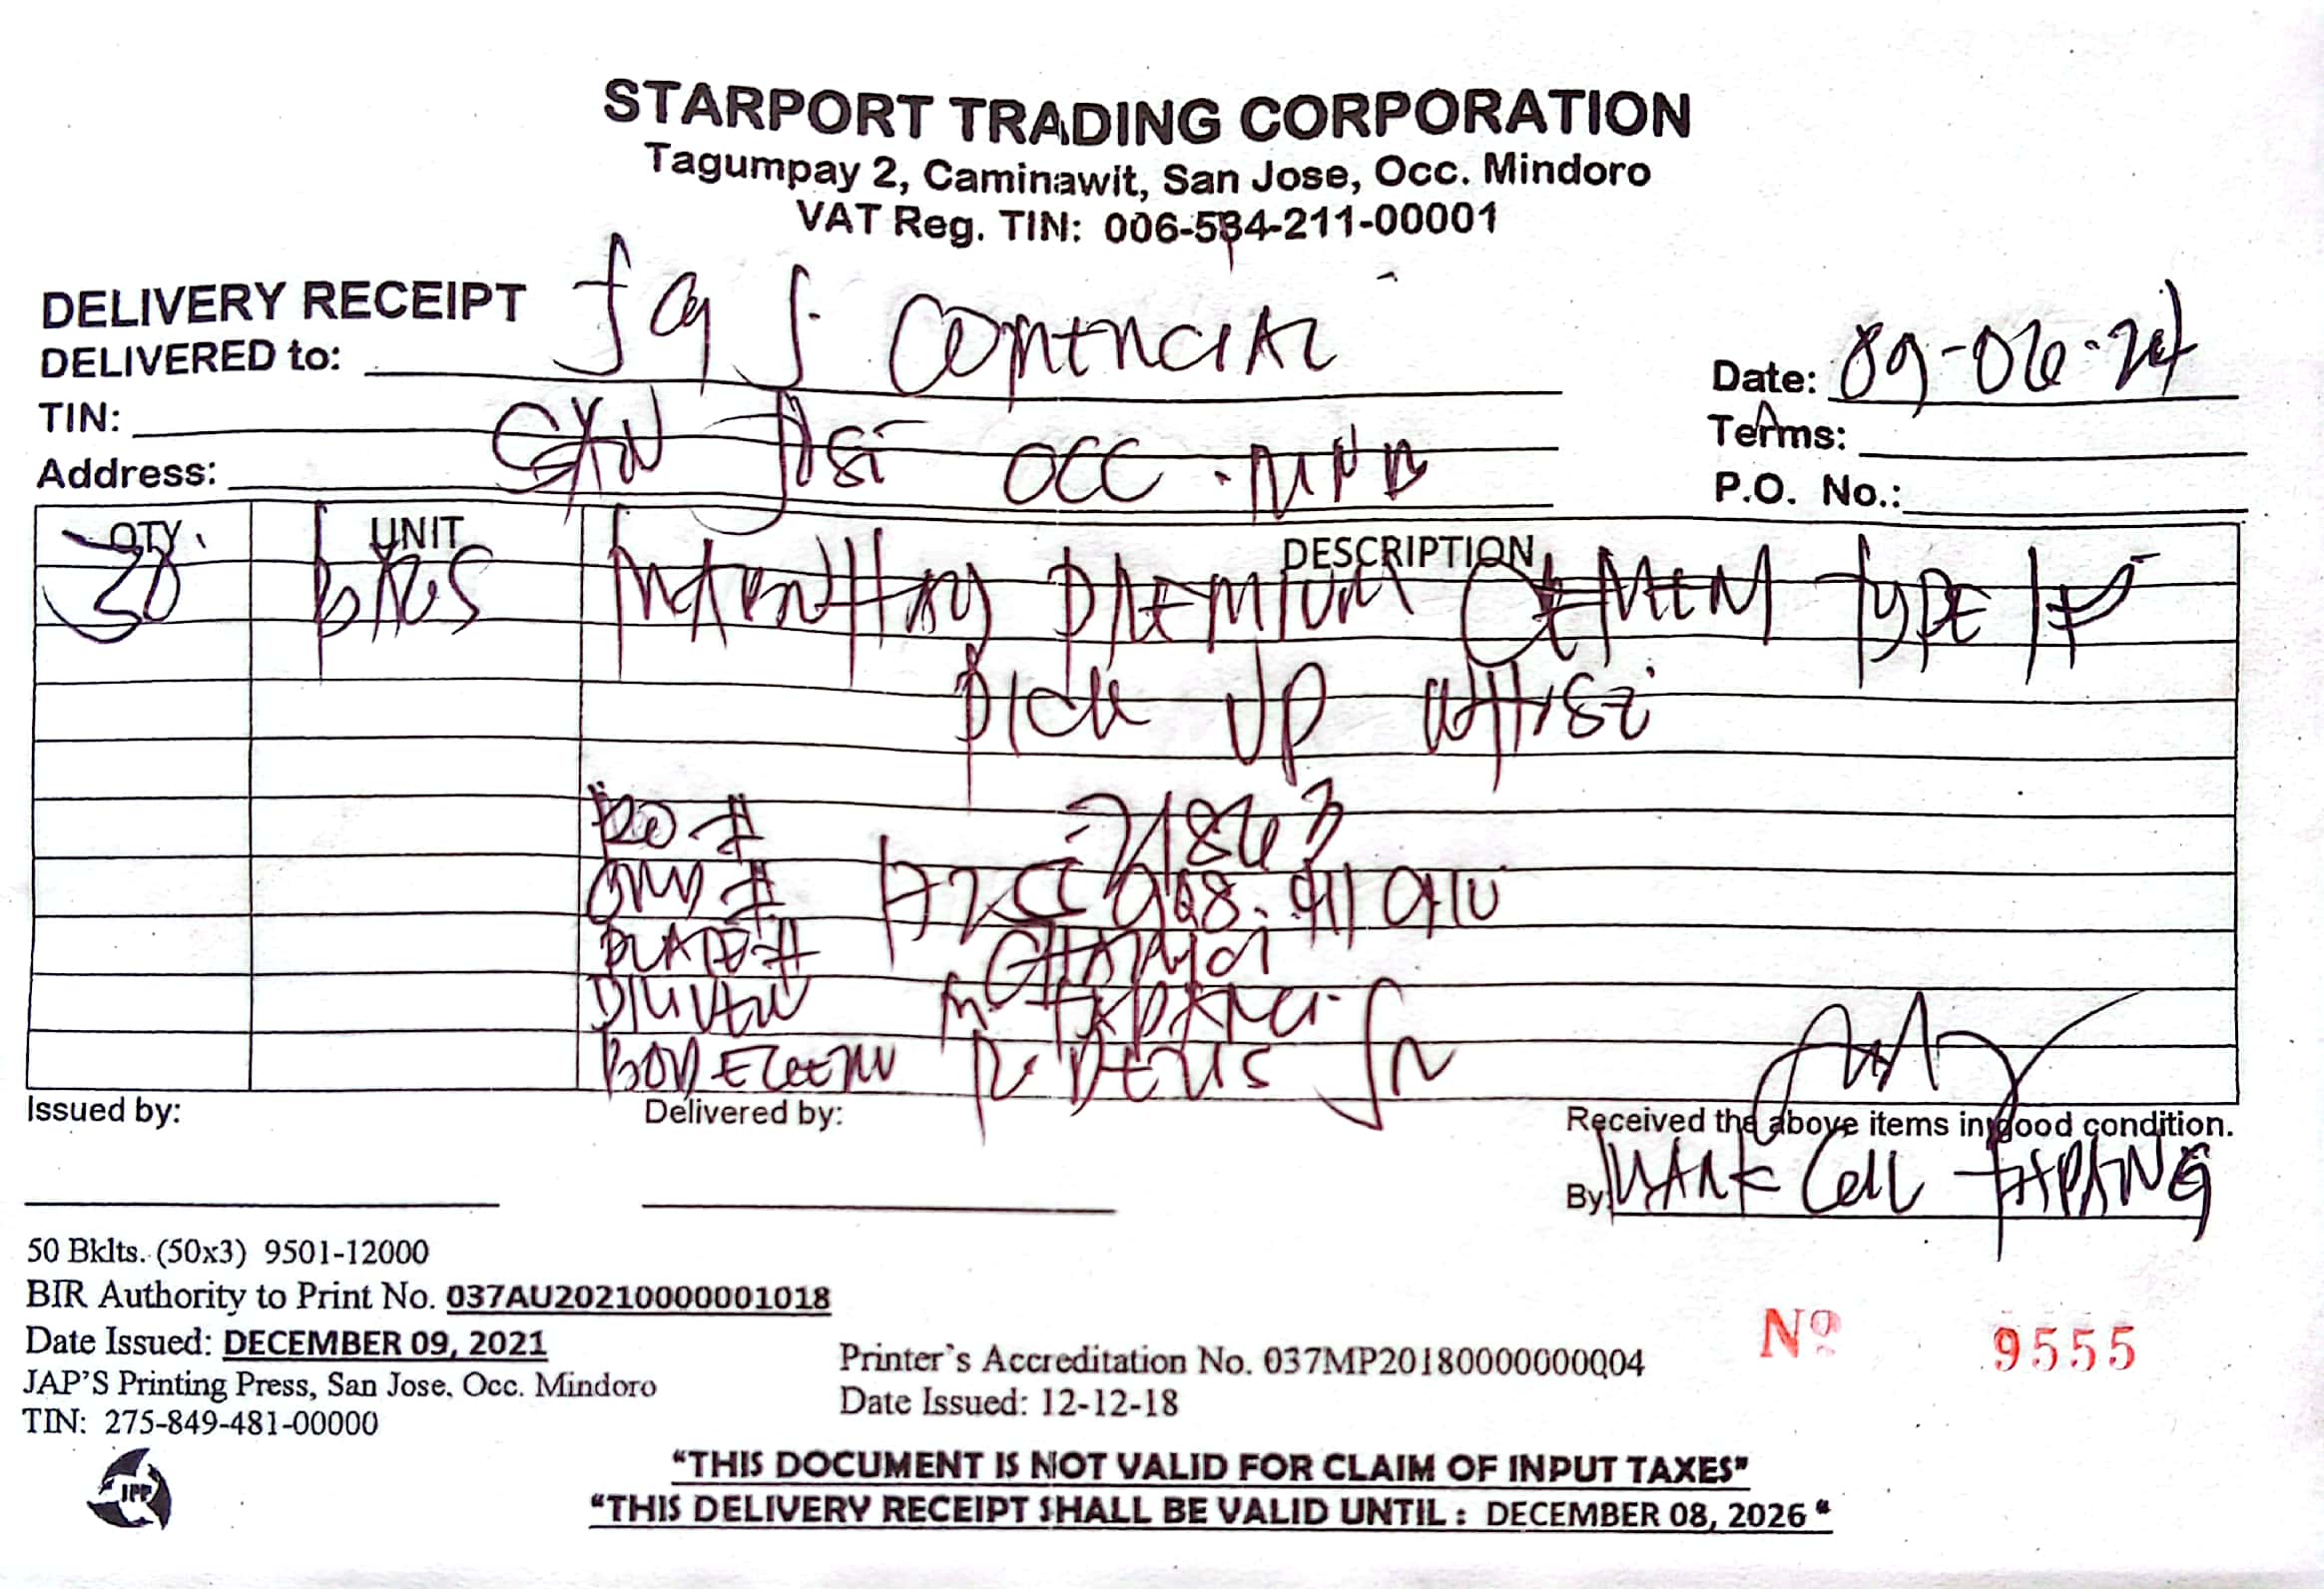 STARPORT TRADING CORPORATION
Tagumpay 2, Caminawit, San Jose, Occ. Mindoro
VAT Reg. TIN: 006-534-211-00001
DELIVERY RECEIPT
DELIVERED to: J COMMERCIAL
Date: 09-06-24
TIN:
Terms:
Address: SAN JOSE OCC. MDO
P.O. No.:
QTY. UNIT DESCRIPTION
30 BAGS PREMIUM CEMENT TYPE
PICK UP
#
#
PLATE #
DRIVER
BODEGERO JR
Issued by:
Delivered by:
Received the above items in good condition.
By: MARK
50 Bklts. (50x3) 9501-12000
BIR Authority to Print No. 037AU20210000001018
Date Issued: DECEMBER 09, 2021
JAP'S Printing Press, San Jose, Occ. Mindoro
TIN: 275-849-481-00000
Printer's Accreditation No. 037MP20180000000004
Date Issued: 12-12-18
Nº 9555
JPP
"THIS DOCUMENT IS NOT VALID FOR CLAIM OF INPUT TAXES"
"THIS DELIVERY RECEIPT SHALL BE VALID UNTIL : DECEMBER 08, 2026 "